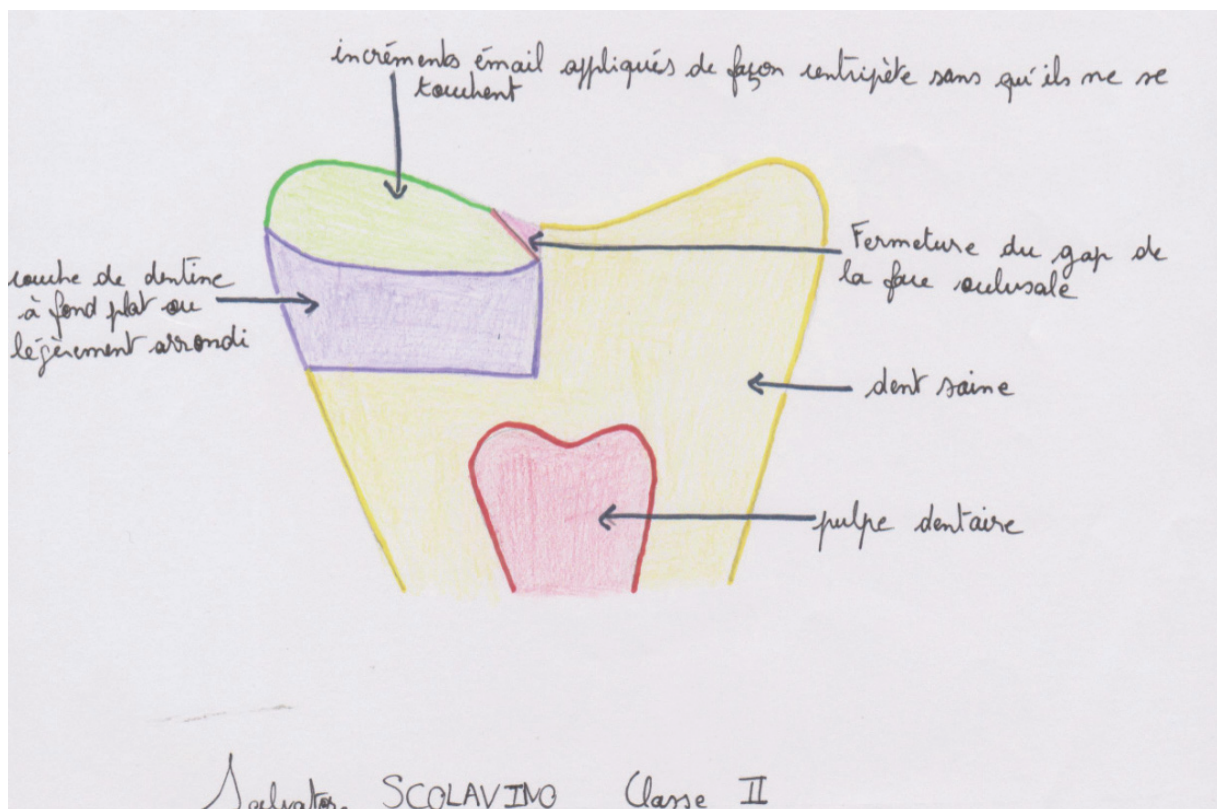 incréments émail appliqués de façon centripète sans qu'ils ne se
touchent
Fermeture du gap de
la face occlusale
couche de dentine
à fond plat ou
légèrement arrondi
dent saine
pulpe dentaire
Salvatore SCOLAVINO Classe II